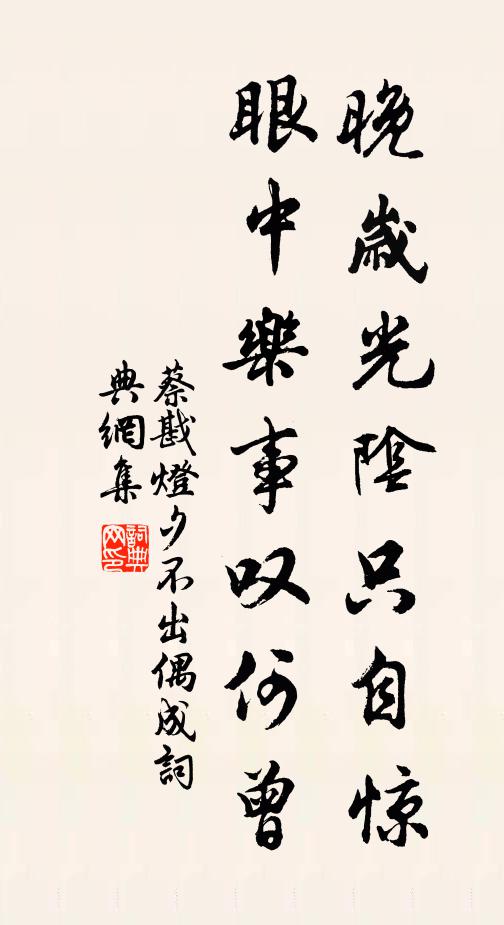 晚歲光陰只自惊
眼中樂事叹何曾
蔡戡燈夕不出偶成詞
典網集
詞典网印